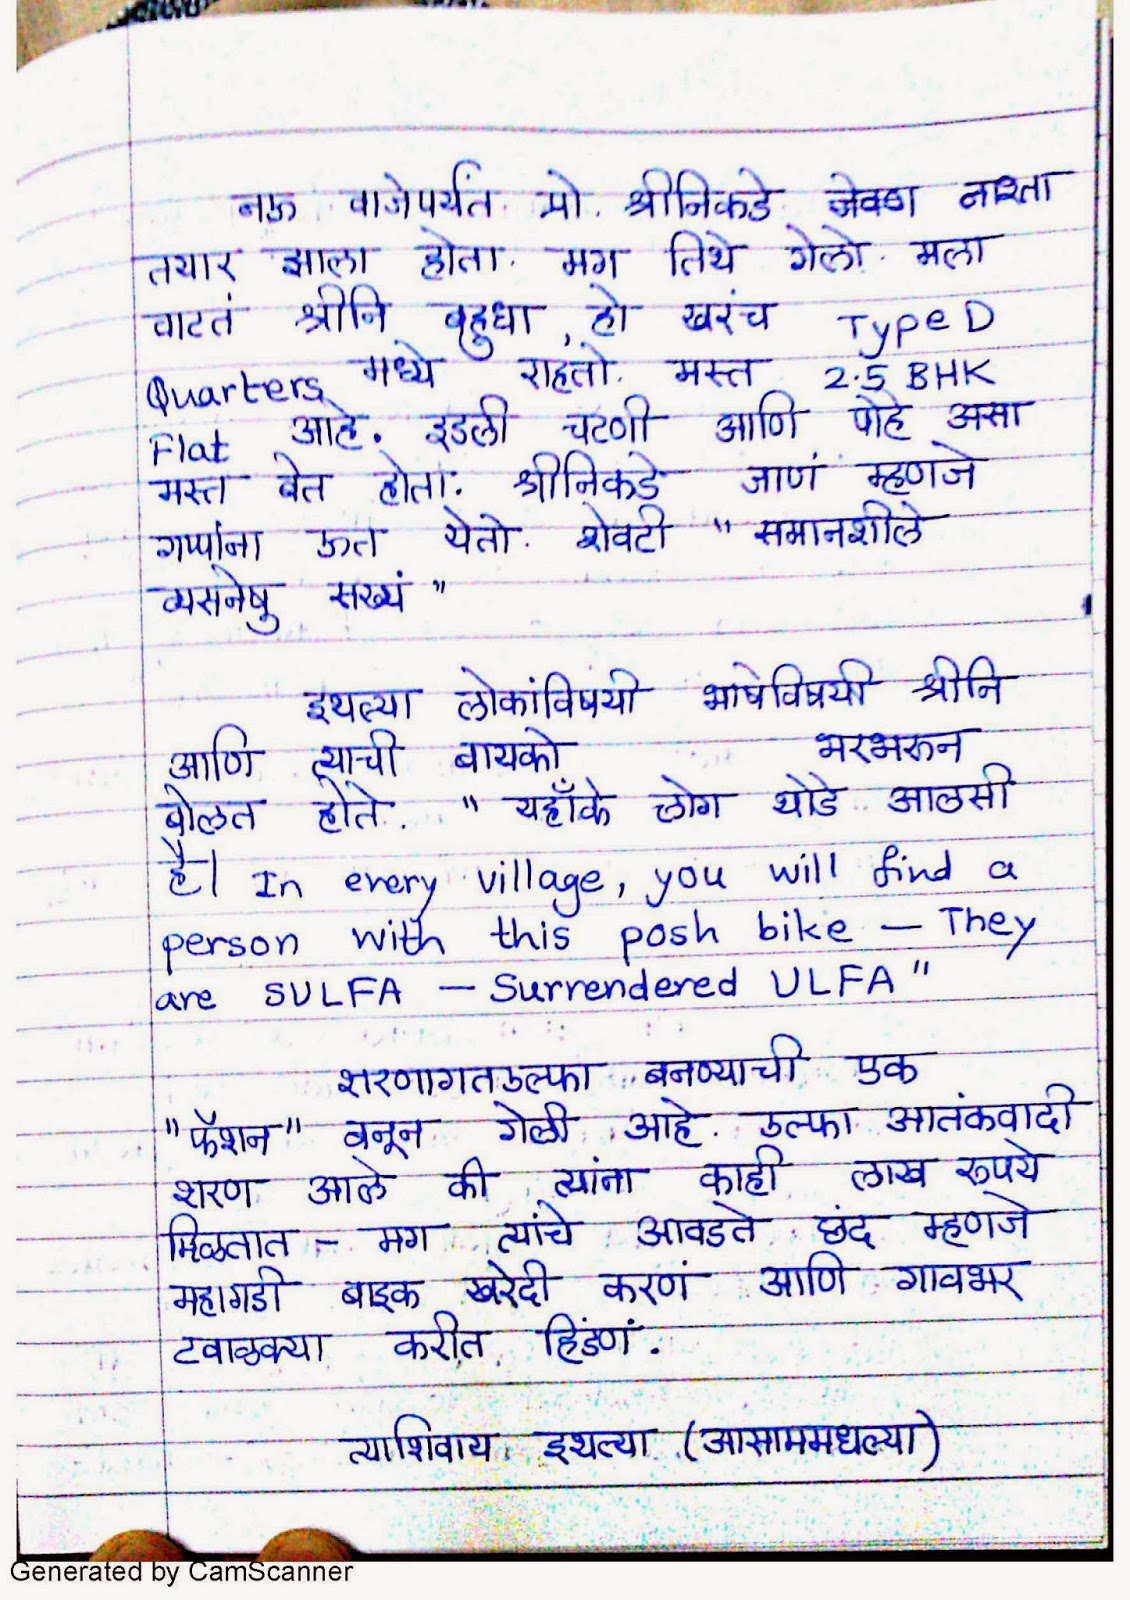 नऊ वाजेपर्यंत प्रो. श्रीनिकडे जेवण नाश्ता
तयार झाला होता. मग तिथे गेलो. मला
वाटतं श्रीनि बहुधा, हो खरंच Type D
Quarters मध्ये राहतो. मस्त 2.5 BHK
Flat आहे. इडली चटणी आणि पोहे असा
मस्त बेत होता. श्रीनिकडे जाणं म्हणजे
गप्पांना ऊत येतो. शेवटी "समानशीले
व्यसनेषु सख्यं"
इथल्या लोकांविषयी भाषेविषयी श्रीनि
आणि त्याची बायको भरभरून
बोलत होते. "यहाँके लोग थोडे आलसी
है। In every village, you will find a
person with this posh bike — They
are SULFA — Surrendered ULFA"
शरणागतउल्फा बनण्याची एक
"फॅशन" बनून गेली आहे. उल्फा आतंकवादी
शरण आले की त्यांना काही लाख रूपये
मिळतात – मग त्यांचे आवडते छंद म्हणजे
महागडी बाइक खरेदी करणं आणि गावभर
टवाळक्या करीत हिंडणं.
त्याशिवाय इथल्या (आसाममधल्या)
Generated by CamScanner